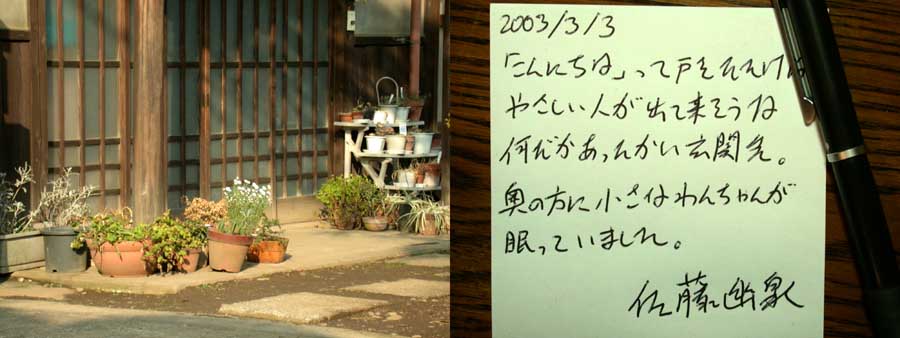 2003/3/3
「こんにちは」って戸をたたけば
やさしい人が出て来そうな
何だかあったかい玄関先。
奥の方に小さなわんちゃんが
眠っていました。
佐藤